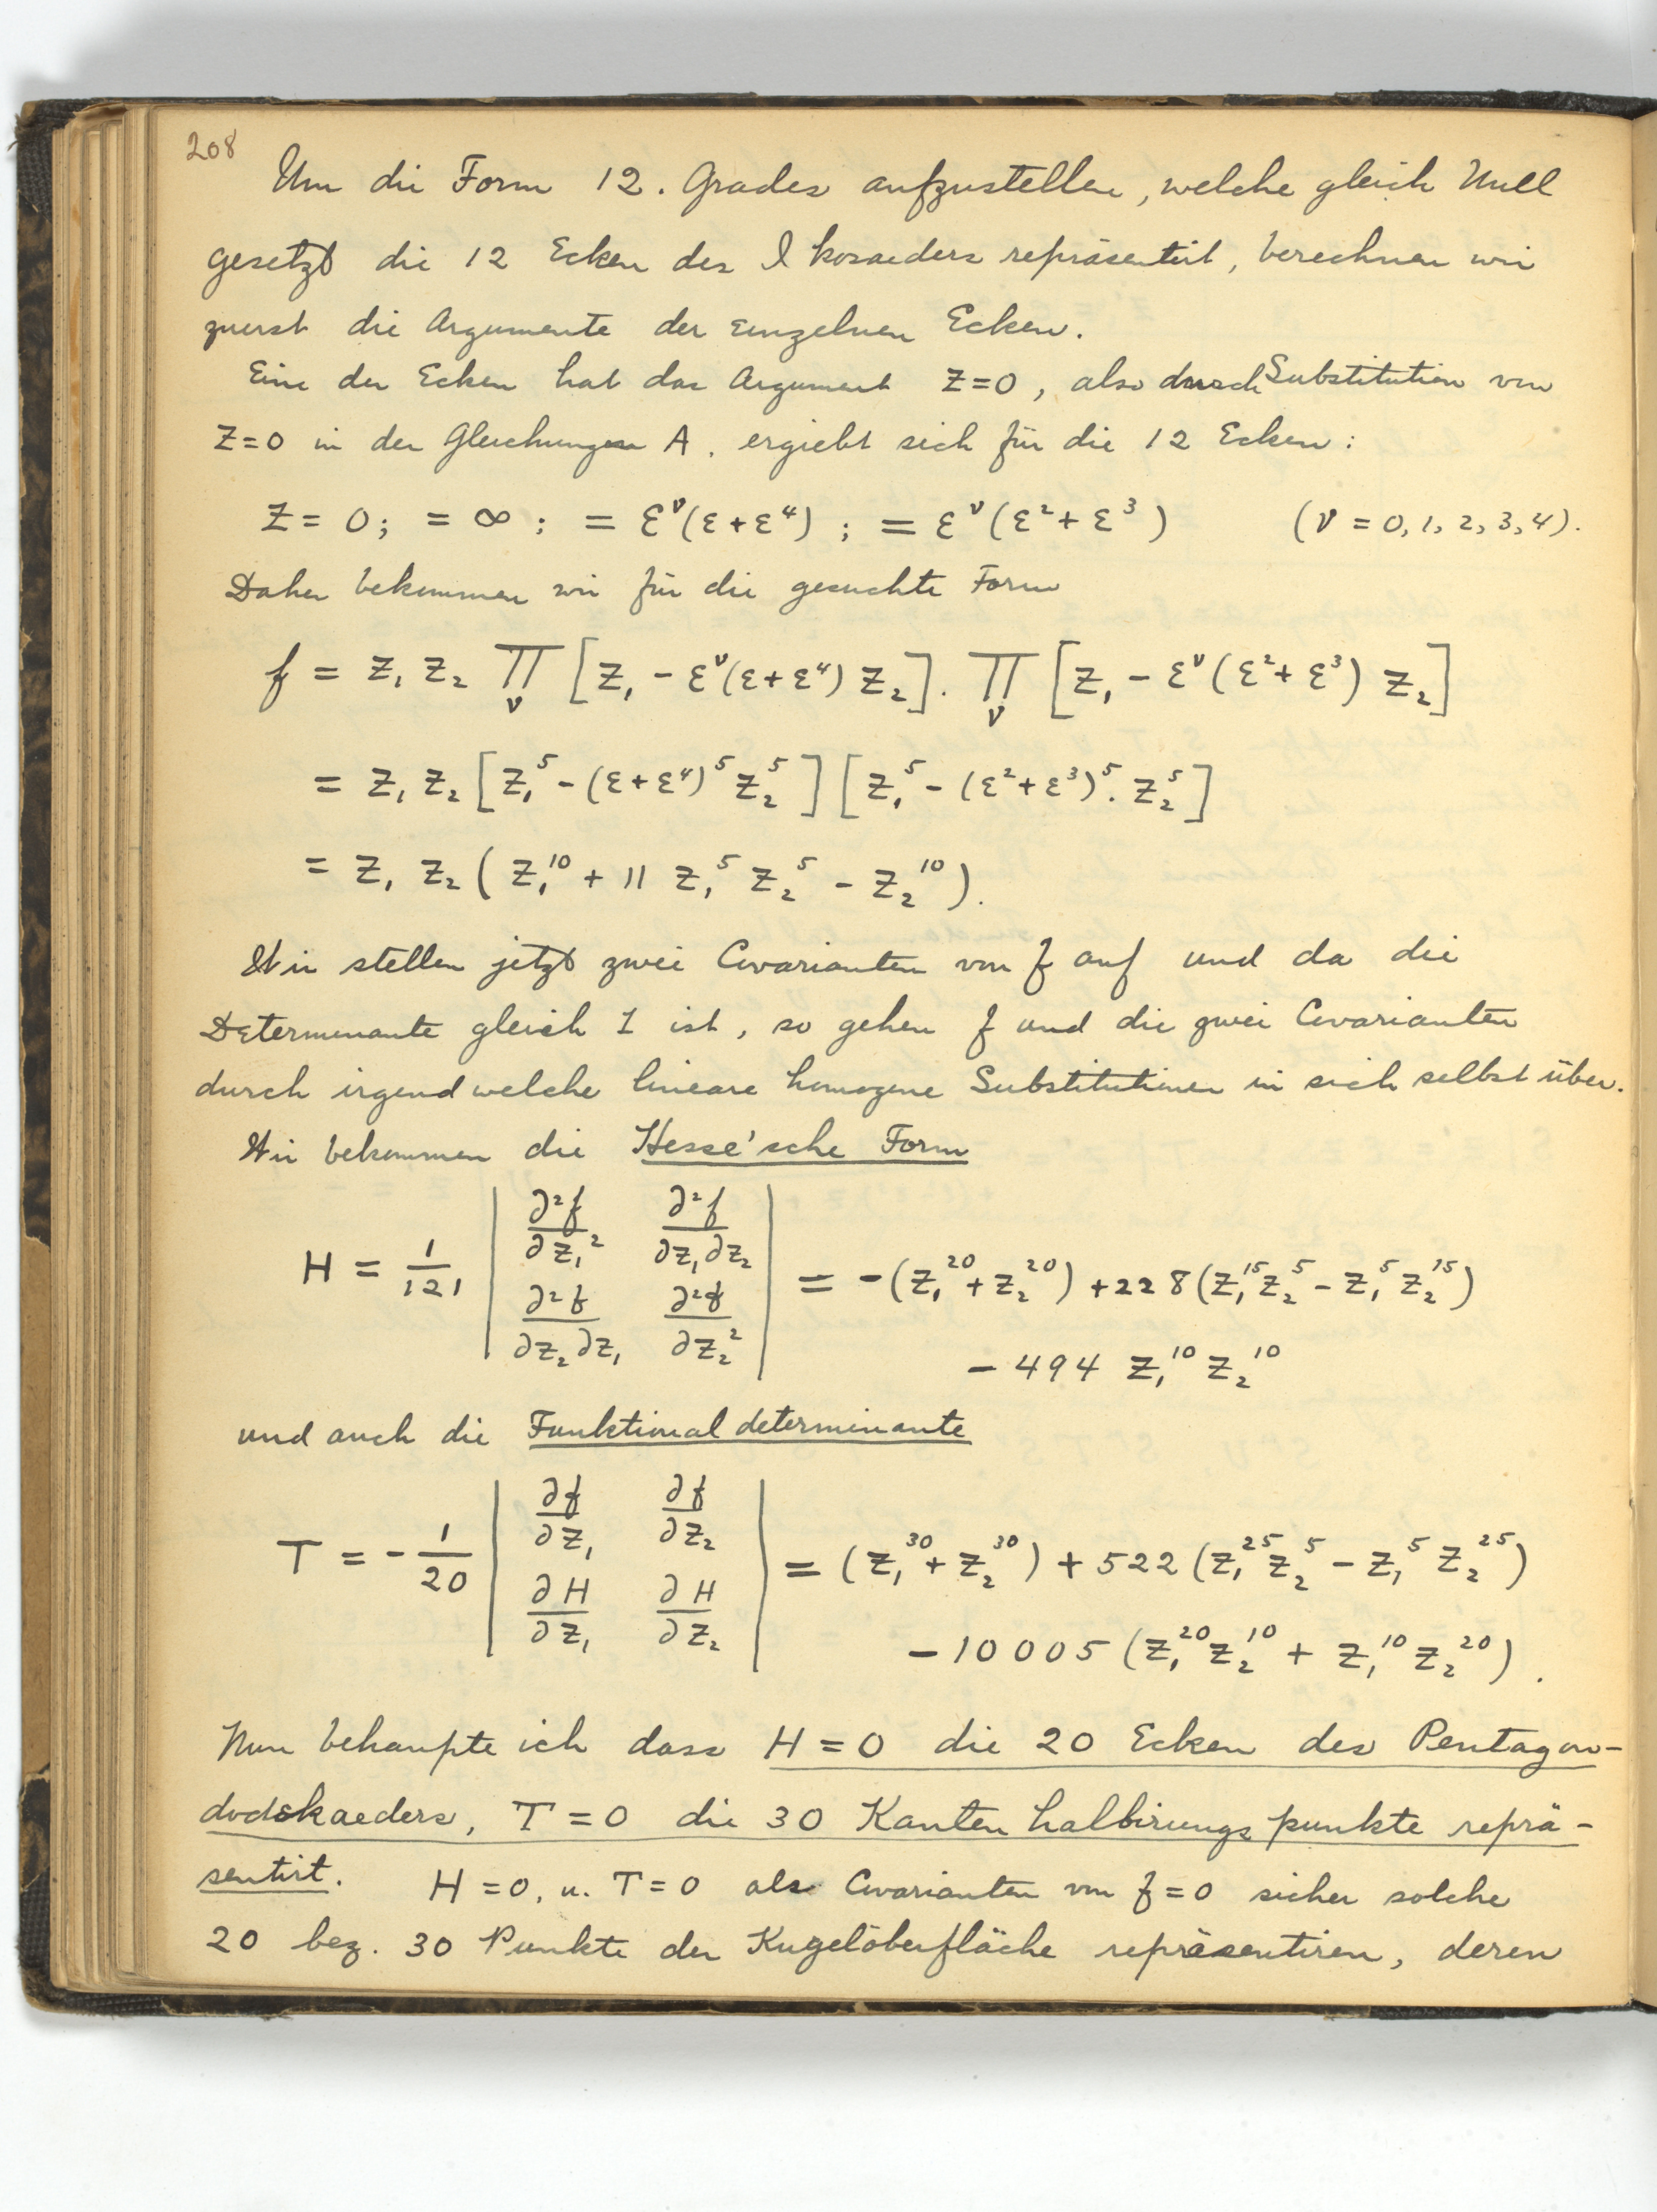 208
Um die Form 12. Grades aufzustellen, welche gleich Null
gesetzt die 12 Ecken des Ikosaeders repräsentirt, berechnen wir
zuerst die Argumente der einzelnen Ecken.
Eine der Ecken hat das Argument z=0, also durch Substitution von
z=0 in den Gleichungen A. ergiebt sich für die 12 Ecken:
z = 0; = ∞; = ε^ν(ε+ε^4); = ε^ν(ε^2+ε^3) (ν = 0, 1, 2, 3, 4).
Daher bekommen wir für die gesuchte Form
f = z_1 z_2 ∏_ν [z_1 - ε^ν(ε+ε^4) z_2] . ∏_ν [z_1 - ε^ν(ε^2+ε^3) z_2]
= z_1 z_2 [z_1^5 - (ε+ε^4)^5 z_2^5] [z_1^5 - (ε^2+ε^3)^5 . z_2^5]
= z_1 z_2 (z_1^10 + 11 z_1^5 z_2^5 - z_2^10).
Wir stellen jetzt zwei Covarianten von f auf und da die
Determinante gleich 1 ist, so gehen f und die zwei Covarianten
durch irgend welche lineare homogene Substitutionen in sich selbst über.
Wir bekommen die Hesse'sche Form
H = 1/121 | ∂²f/∂z_1² ∂²f/∂z_1∂z_2 ; ∂²f/∂z_2∂z_1 ∂²f/∂z_2² | = -(z_1^20 + z_2^20) + 228(z_1^15 z_2^5 - z_1^5 z_2^15)
- 494 z_1^10 z_2^10
und auch die Funktionaldeterminante
T = - 1/20 | ∂f/∂z_1 ∂f/∂z_2 ; ∂H/∂z_1 ∂H/∂z_2 | = (z_1^30 + z_2^30) + 522(z_1^25 z_2^5 - z_1^5 z_2^25)
- 10005 (z_1^20 z_2^10 + z_1^10 z_2^20).
Nun behaupte ich dass H=0 die 20 Ecken des Pentagon-
dodekaeders, T=0 die 30 Kantenhalbirungspunkte reprä-
sentirt. H=0, u. T=0 als Covarianten von f=0 sicher solche
20 bez. 30 Punkte der Kugeloberfläche repräsentiren, deren